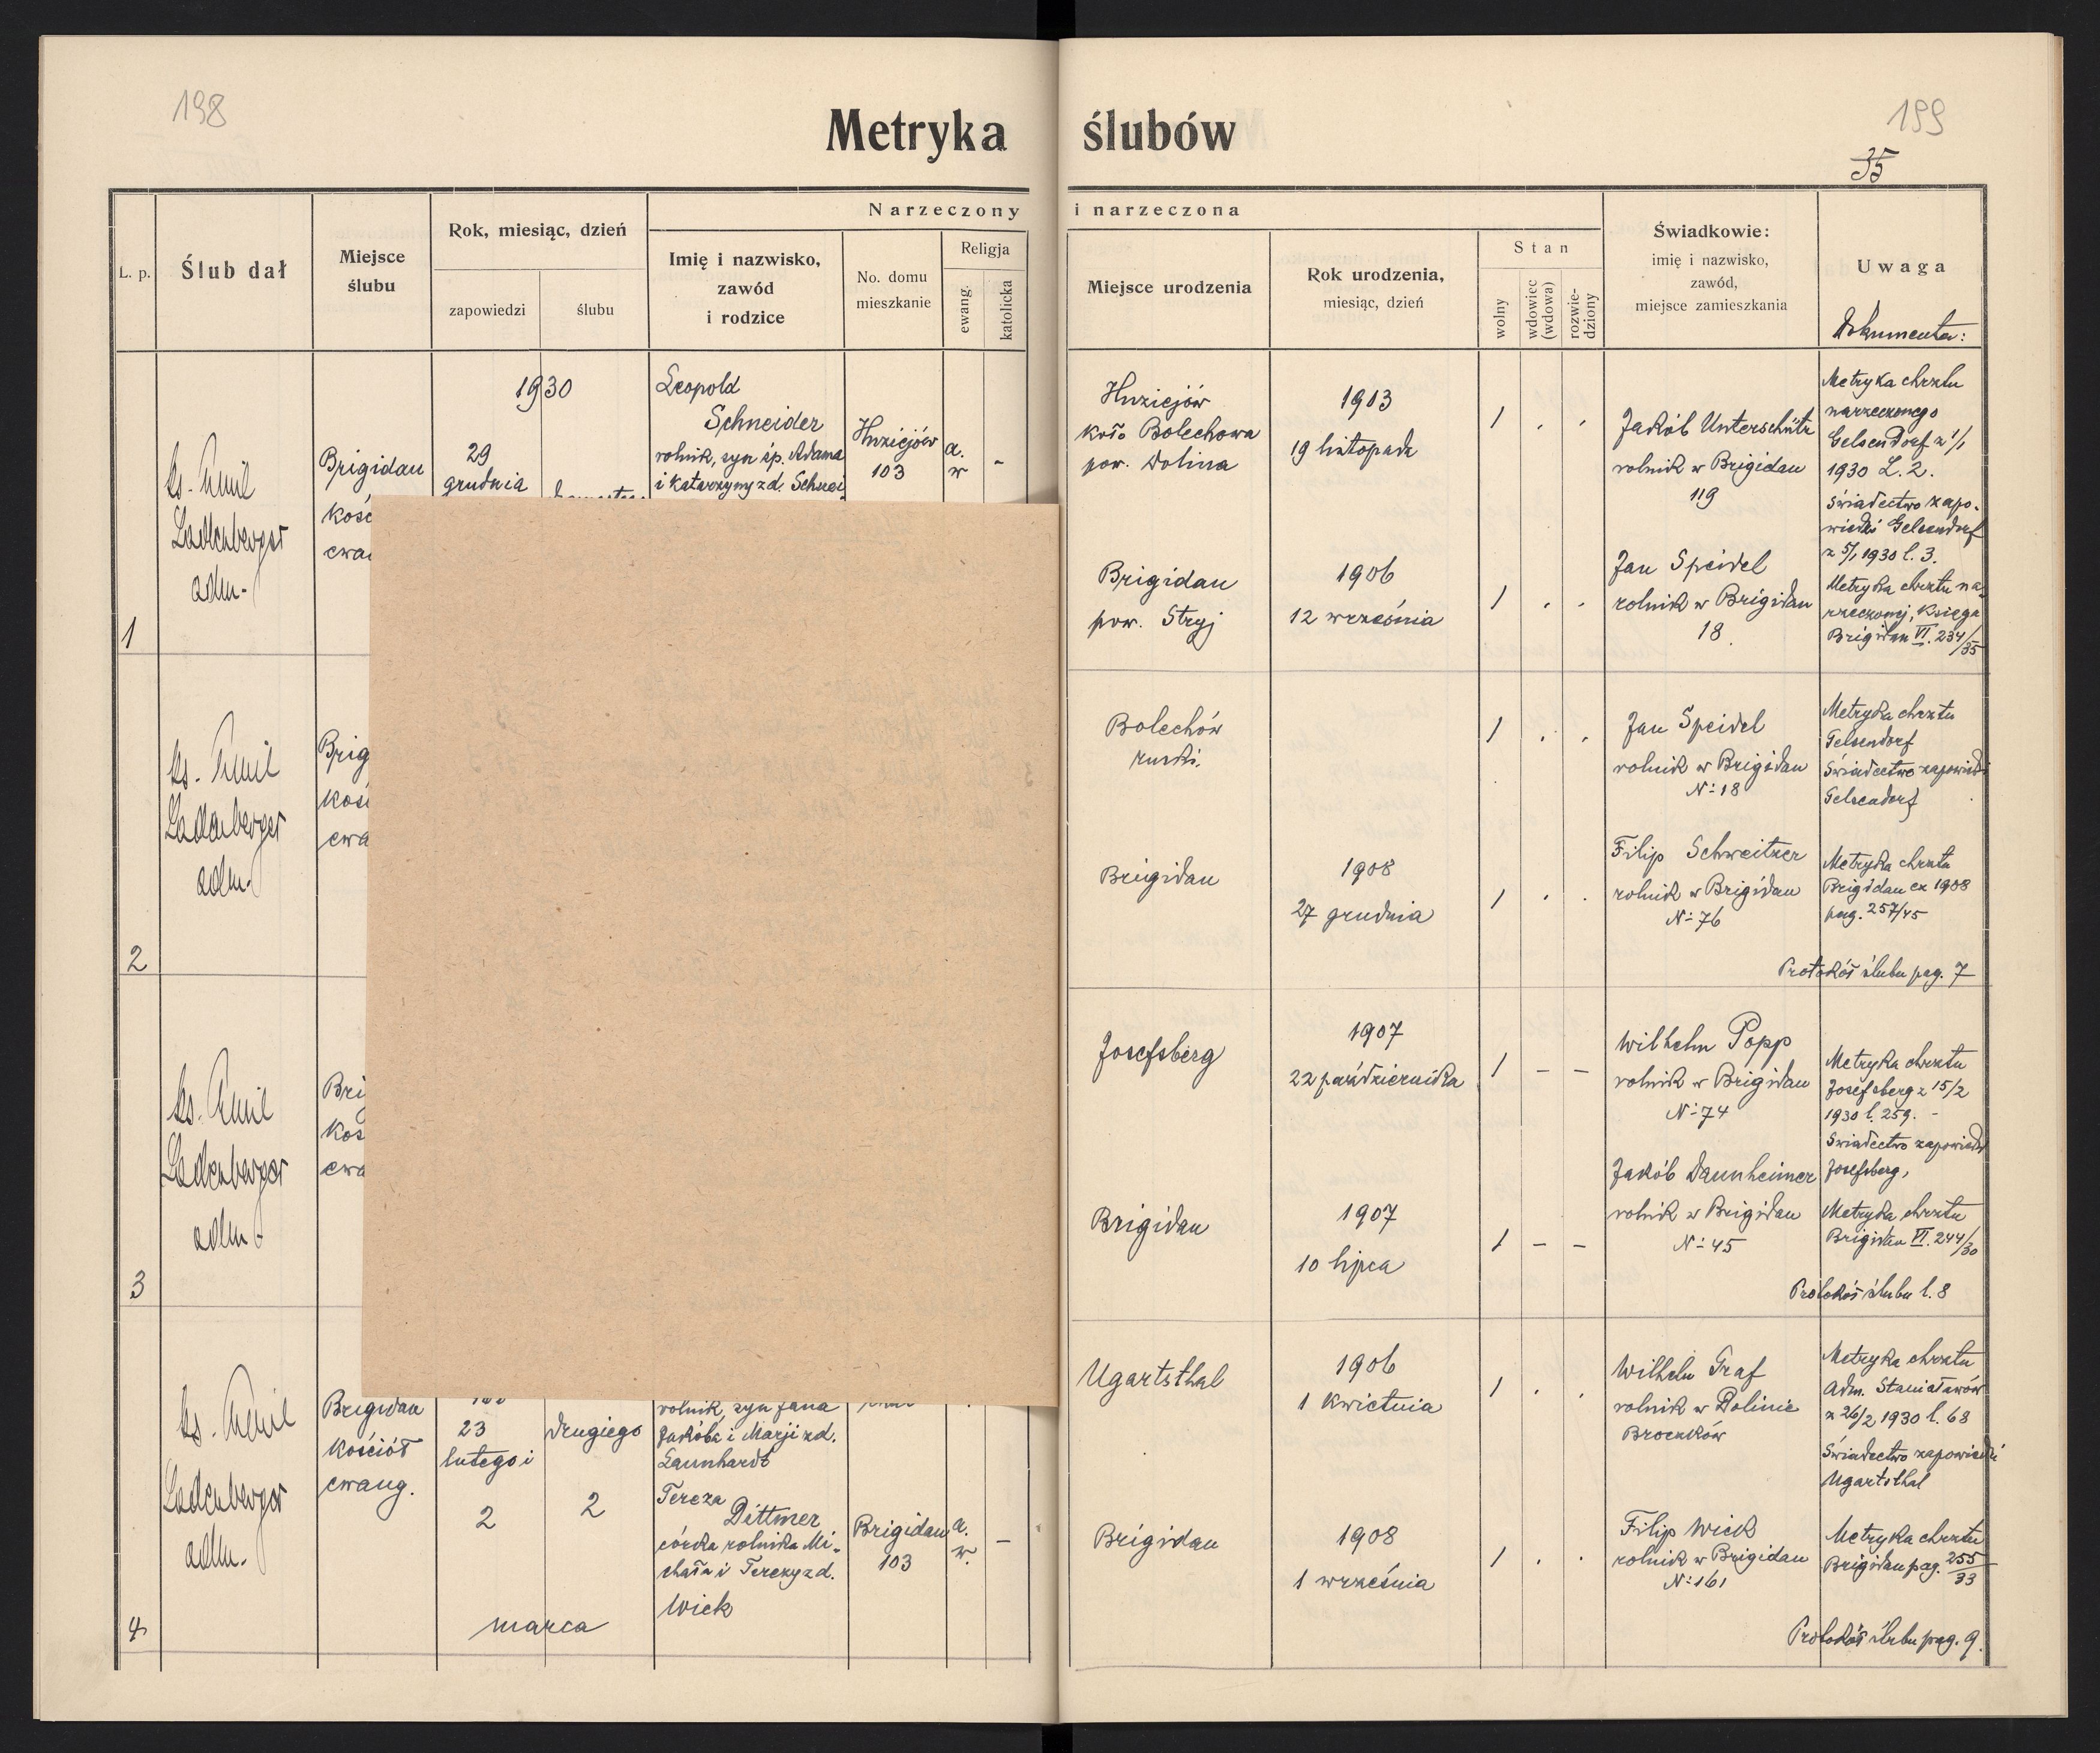 198
199
35
Metryka ślubów
L. p.
Ślub dał
Miejsce
ślubu
Rok, miesiąc, dzień
zapowiedzi
ślubu
Narzeczony i narzeczona
Imię i nazwisko,
zawód
i rodzice
No. domu
mieszkanie
Religja
ewang.
katolicka
Miejsce urodzenia
Rok urodzenia,
miesiąc, dzień
Stan
wolny
wdowiec
(wdowa)
rozwie-
dziony
Świadkowie:
imię i nazwisko,
zawód,
miejsce zamieszkania
Uwaga
Dokumenta:
1
ks. Emil
Ladenberger
adm.
Brigidau
kośc
ewa
1930
29
grudnia
Leopold
Schneider
rolnik, syn śp. Adama
i Katarzyny zd. Schnei
Huziejów
103
a.
w
-
Huziejów
koło Bolechowa
pow. Dolina
1903
19 listopada
1 . .
Jakób Unterschütz
rolnik w Brigidau
119
Metryka chrztu
narzeczonego
Gelsendorf z 1/1
1930 L. 2.
Świadectwo zapo-
wiedzi Gelsendorf
z 5/1 1930 l. 3.
Brigidau
pow. Stryj
1906
12 września
1 . .
Jan Speidel
rolnik w Brigidau
18.
Metryka chrztu na-
rzeczonej, Księga
Brigidau VI. 234/35
2
ks. Emil
Ladenberger
adm.
Brig
kośc
ewa
Bolechów
ruski.
1 . .
Jan Speidel
rolnik w Brigidau
No 18
Metryka chrztu
Gelsendorf
Świadectwo zapowiedzi
Gelsendorf
Brigidau
1908
27 grudnia
1 . .
Filip Schweitzer
rolnik w Brigidau
No 76
Metryka chrztu
Brigidau ex 1908
pag. 257/45
Protokół ślubu pag. 7
3
ks. Emil
Ladenberger
adm.
Bri
koś
ewa
Josefsberg
1907
22 października
1 – –
Wilhelm Popp
rolnik w Brigidau
No 74
Metryka chrztu
Josefsberg z 15/2
1930 l. 259. -
Świadectwo zapowiedzi
Josefsberg,
Brigidau
1907
10 lipca
1 – –
Jakób Daunheimer
rolnik w Brigidau
No 45
Metryka chrztu
Brigidau VI. 244/30
Protokół ślubu l. 8
4
ks. Emil
Ladenberger
adm.
Brigidau
kościół
ewang.
23
lutego i
2
drugiego
2
marca
rolnik, syn Jana
Jakóba i Marji zd.
Launhardt
Tereza
Dittmer
córka rolnika Mi-
chała i Terezy zd.
Wick
Brigidau
103
a.
w.
–
Ugartsthal
1906
1 kwietnia
1 . .
Wilhelm Graf
rolnik w Dolinie
Broczków
Metryka chrztu
Adm. Stanisławów
z 26/2 1930 l. 68
Świadectwo zapowiedzi
Ugartsthal
Brigidau
1908
1 września
1 . .
Filip Wick
rolnik w Brigidau
No 161
Metryka chrztu
Brigidau pag. 255/33
Protokół ślubu pag. 9.